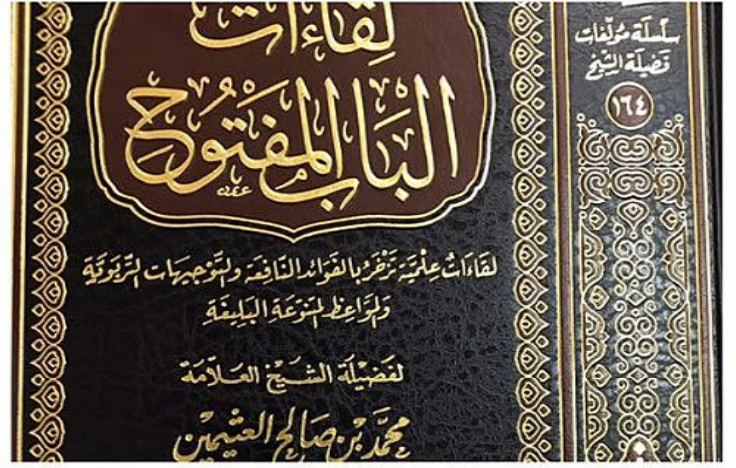 لِقَاءَاتُ
البَابِ المَفْتُوحِ
لقَاءَاتٌ عِلْمِيَّة تَزْخَرُ بالفَوَائد النَّافِعَة والتَّوْجِيهَات التَّربَوِيَّة
والمَوَاعِظ المتنَوّعَة البَلِيغَةِ
لفَضِيْلَة الشَّيْخ العَلَّامَة
محمَّد بْن صَالح العثيمين
سلْسلَة مؤلّفات
فَضيلَة الشّيْخ
١٦٤